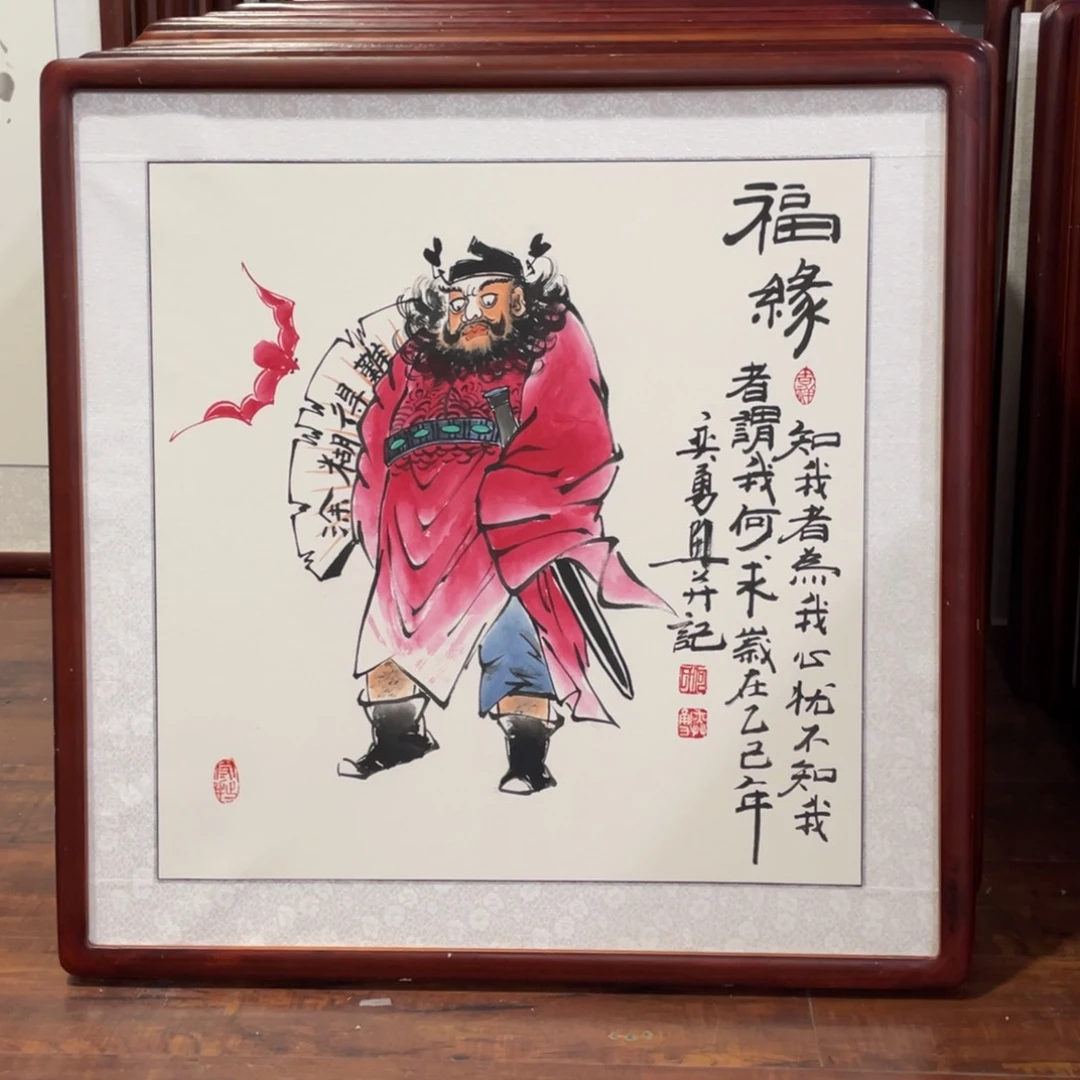 福緣
吉祥
知我者為我心忧不知我
者謂我何求歲在乙巳年
奕勇并記
難得糊涂